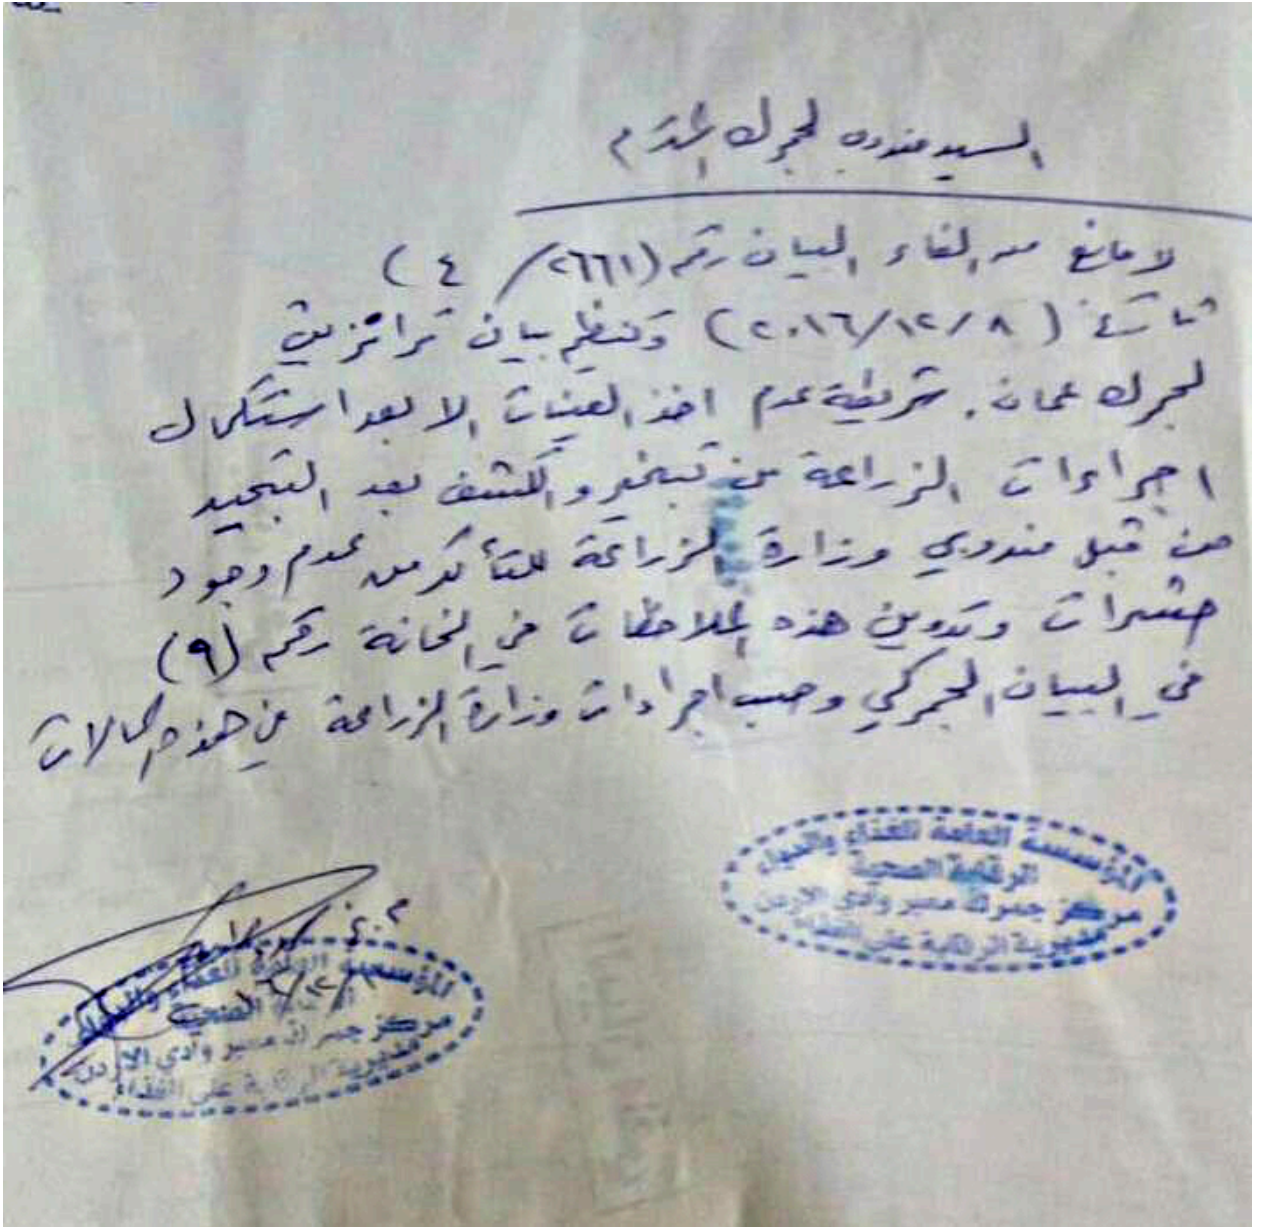 السيد مندوب الجمرك المحترم
لا مانع من الغاء البيان رقم (٢٦٦١ / ٤)
تاريخ (٢٠١٦/١٢/٨) وتنظيم بيان ترانزيت
لجمرك عمان. شريطة عدم اخذ العينات الا بعد استكمال
اجراءات الزراعة من تبخير والكشف بعد التبخير
من قبل مندوبي وزارة الزراعة للتأكد من عدم وجود
حشرات وتدوين هذه الملاحظات في الخانة رقم (٩)
في البيان الجمركي وحسب اجراءات وزارة الزراعة في هذه الحالات
المؤسسة العامة للغذاء والدواء
الرقابة الصحية
مركز جمرك معبر وادي الاردن
مديرية الرقابة على الغذاء
المؤسسة العامة للغذاء والدواء
الرقابة الصحية
مركز جمرك معبر وادي الاردن
مديرية الرقابة على الغذاء